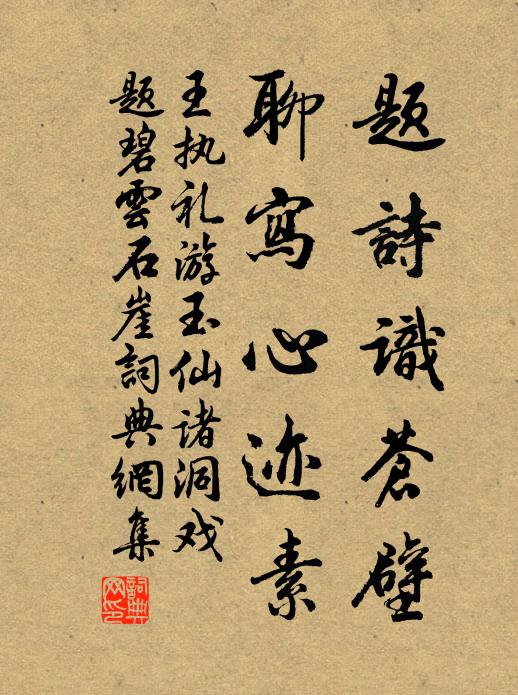 題詩識蒼壁
聊寫心迹素
王执礼游玉仙诸洞戏
题碧雲石崖詞典網集
詞典网印